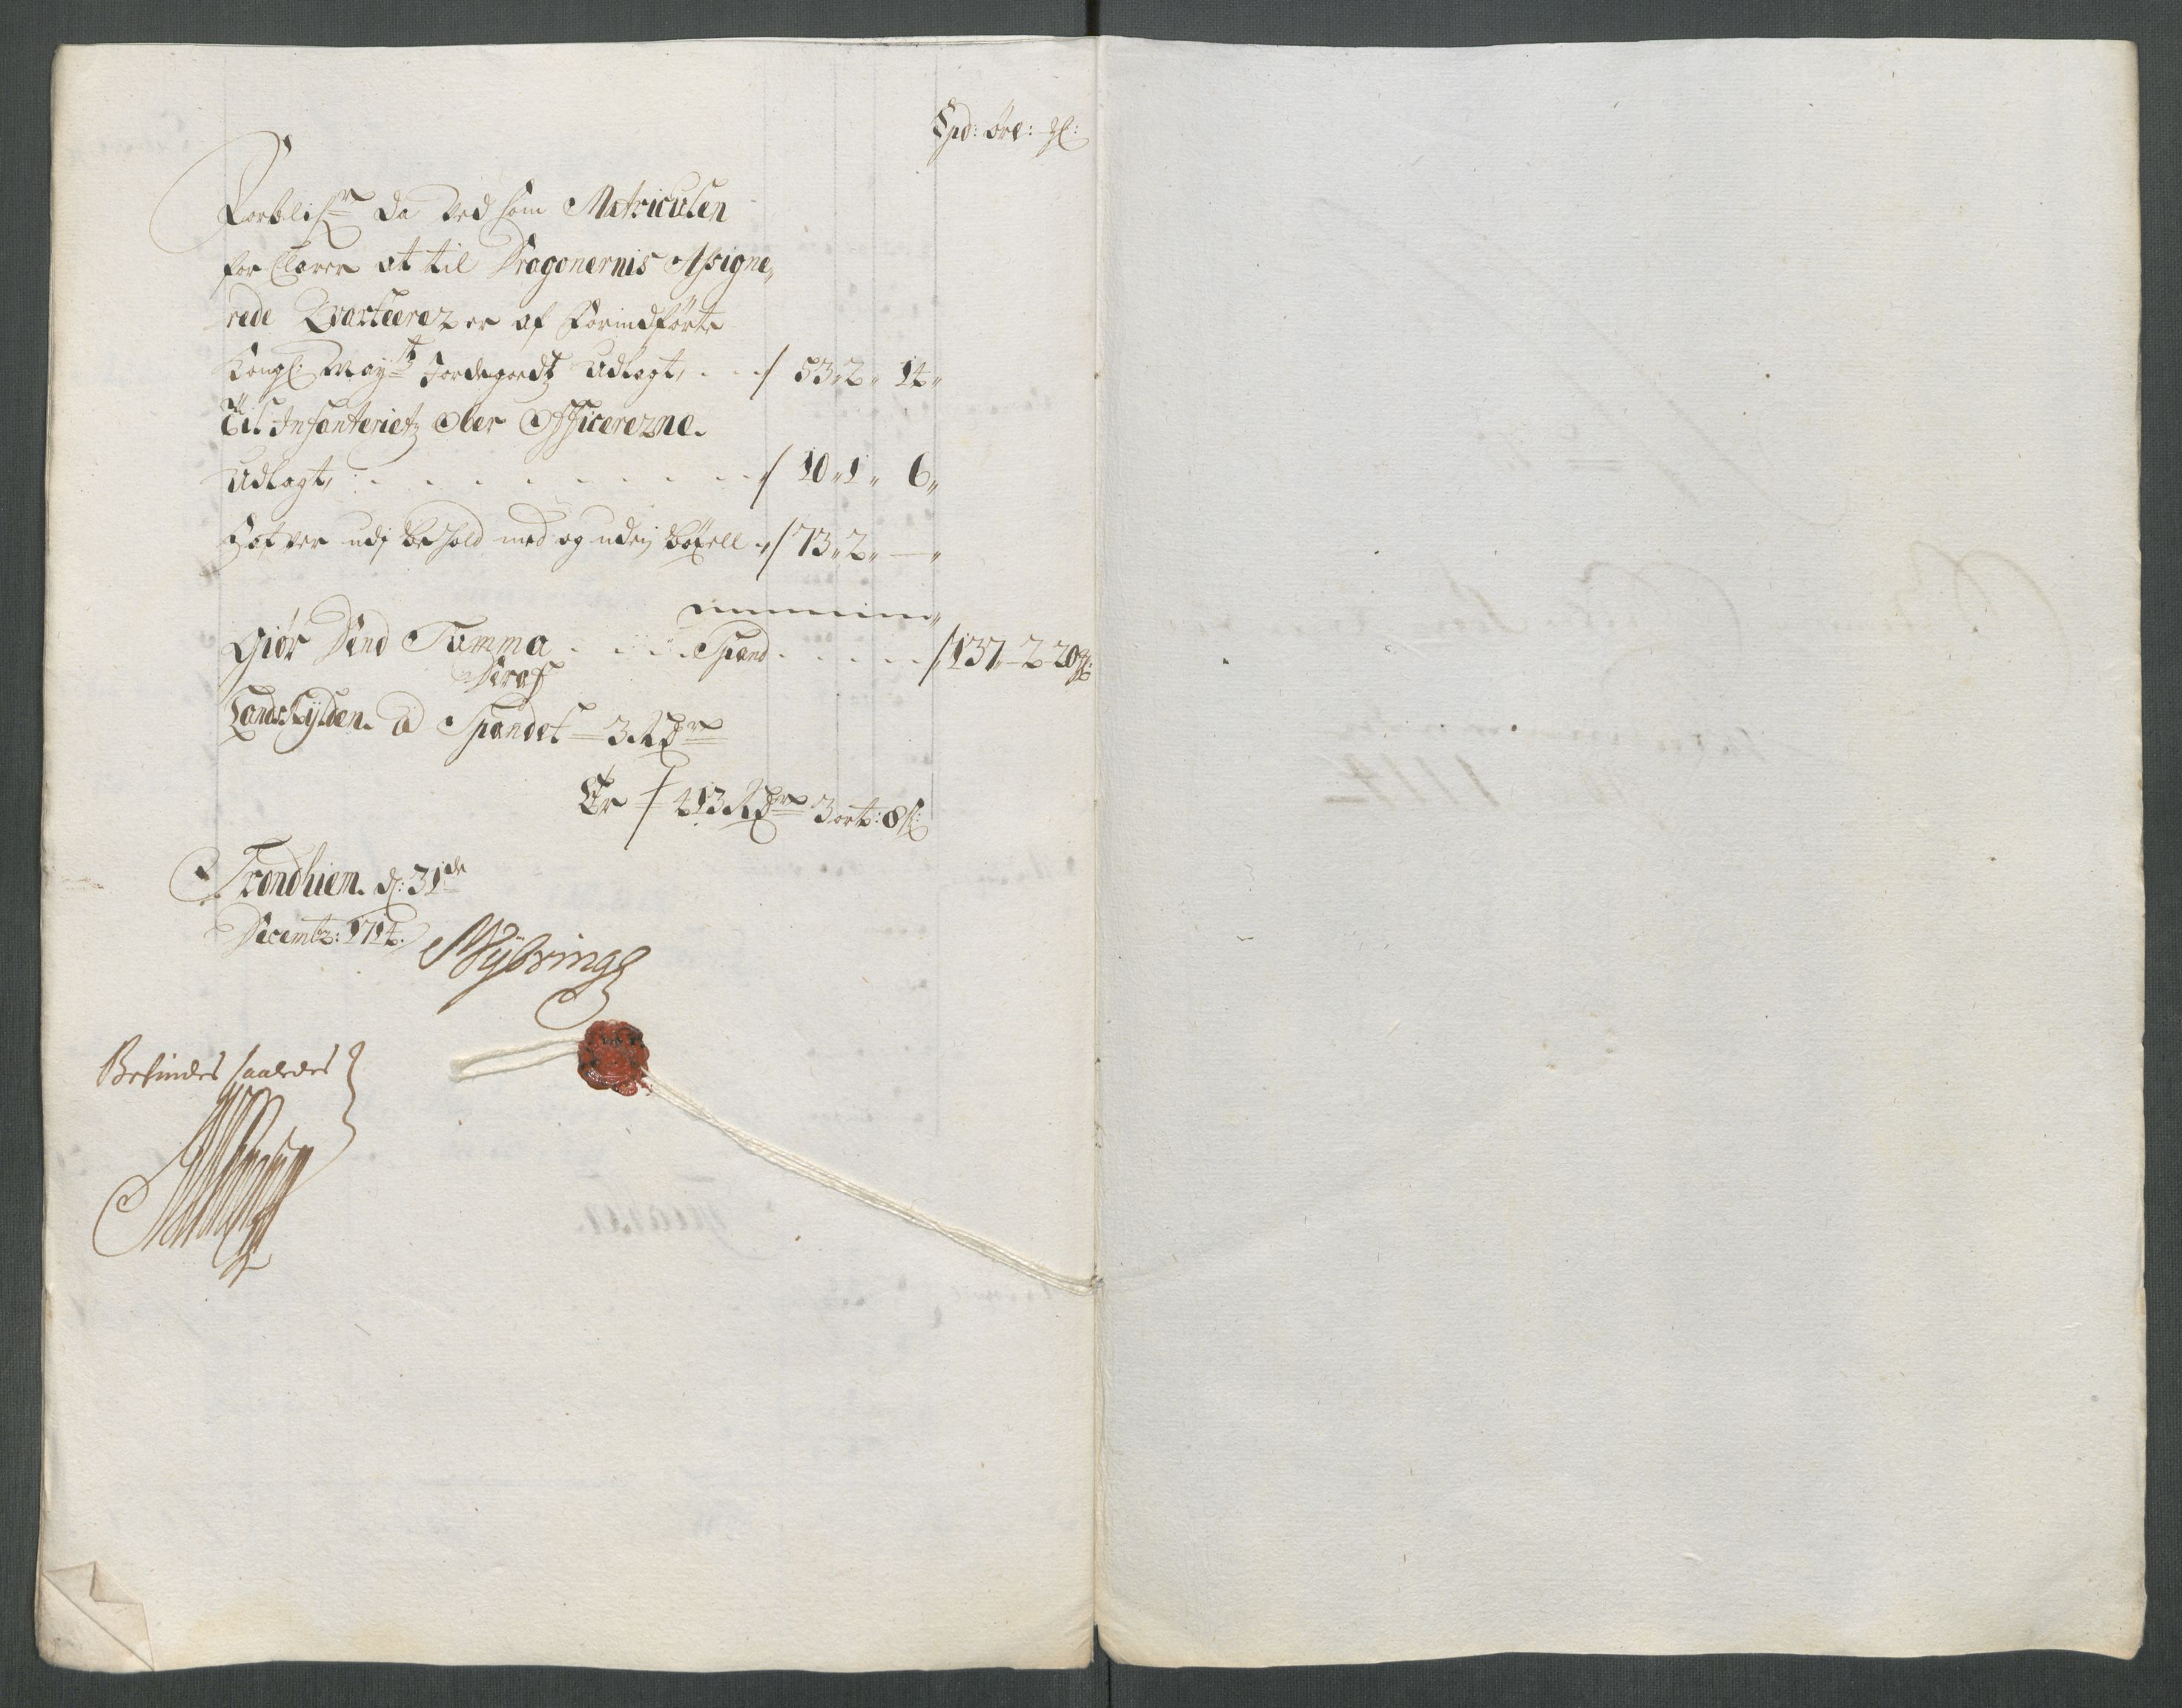 Spd: øre: gl:
Forblifr da ved som Matriculen
for Clarer at til Dragonernis Assigne,,
rede Qvarteerer er af Forindførte
Kongl: Maytz Jordegordtz Udlagt, . . . / 53,, 2,, 14,,
Til Infanterietz Ober Officererne.
Udlagt, . . . . . . . . . / 10,, 1,, 6,,
udj Behold med og uden Bøxell / 73,, 2,, — ,,
Giør Dend Summa . . . . Spand . . . . . / 137,, — 2 — 20 gl:
Deraf
Landskylden. a Spandet — 3 Rdr
Er / 413 Rdr 3 ort: 8 s:
Trondhiem. d: 31de
Decembr: 1714.
Befindes saaledes